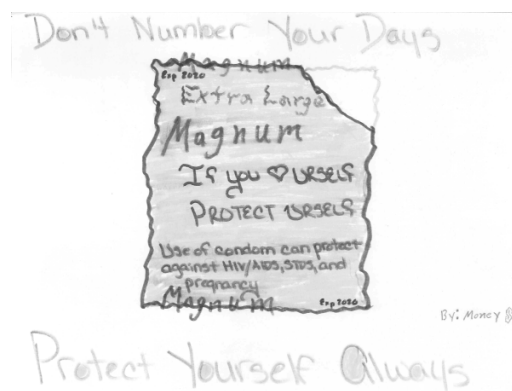 Don't Number Your Days
Magnum
Exp 2020
Extra Large
Magnum
If you ♡ URSELF
PROTECT URSELF
Use of condom can protect
against HIV/AIDS, STDS, and
pregnancy
Magnum
Exp 2020
By: Money
Protect Yourself Always